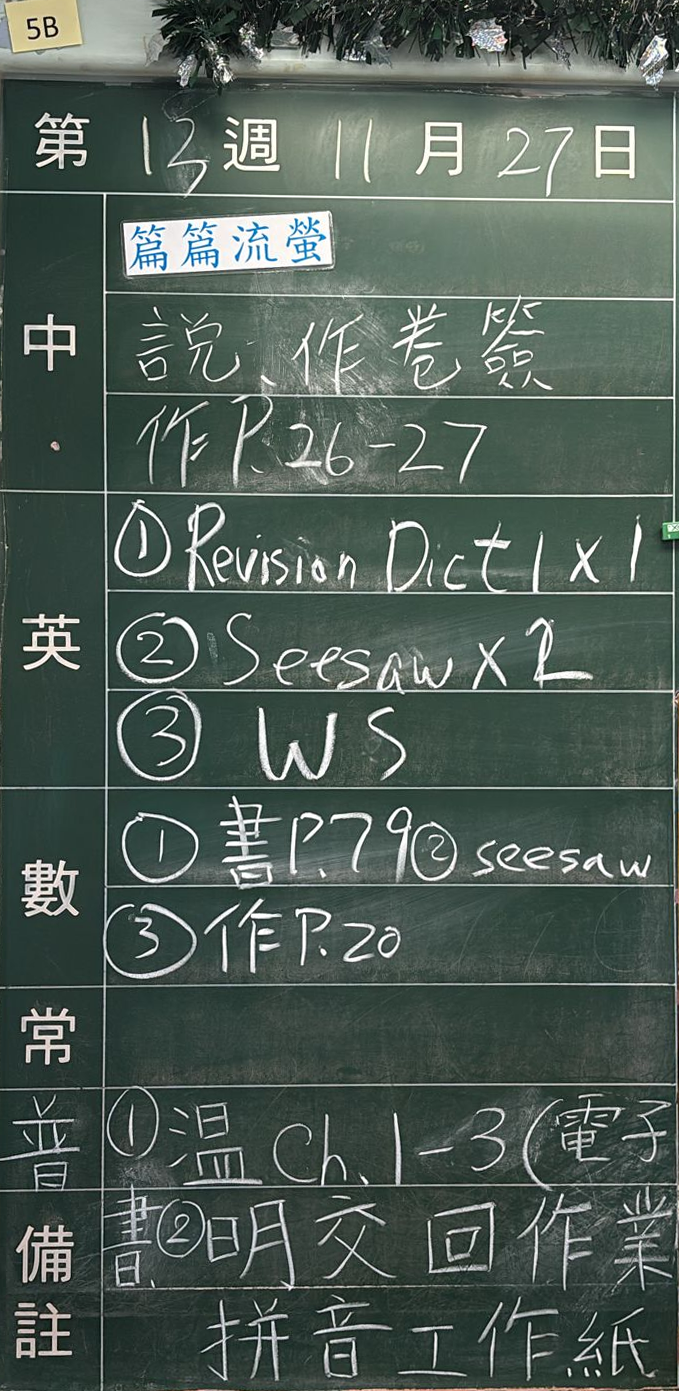 5B
第 13 週 11 月 27 日
中
篇篇流螢
説、作卷簽
作P.26-27
英
① Revision Dict 1 x 1
② Seesaw x 2
③ WS
數
① 書P.79 ② seesaw
③ 作P.20
常
普
① 温 Ch.1-3 (電子
備註
書 ② 明交回作業
拼音工作紙